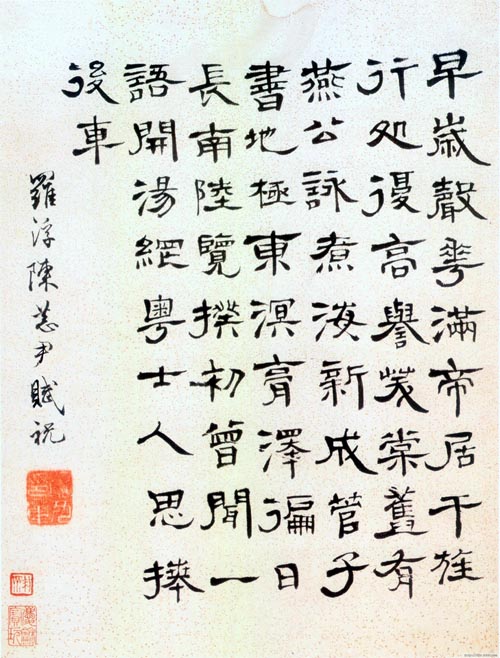 早歲聲華滿帝居干旌
行处復高譽茇棠舊有
燕公詠煮海新成管子
書地極東溟膏澤徧日
長南陸覽揆初曾聞一
語開湯網粵士人思捧
後車
羅浮陳恭尹賦祝